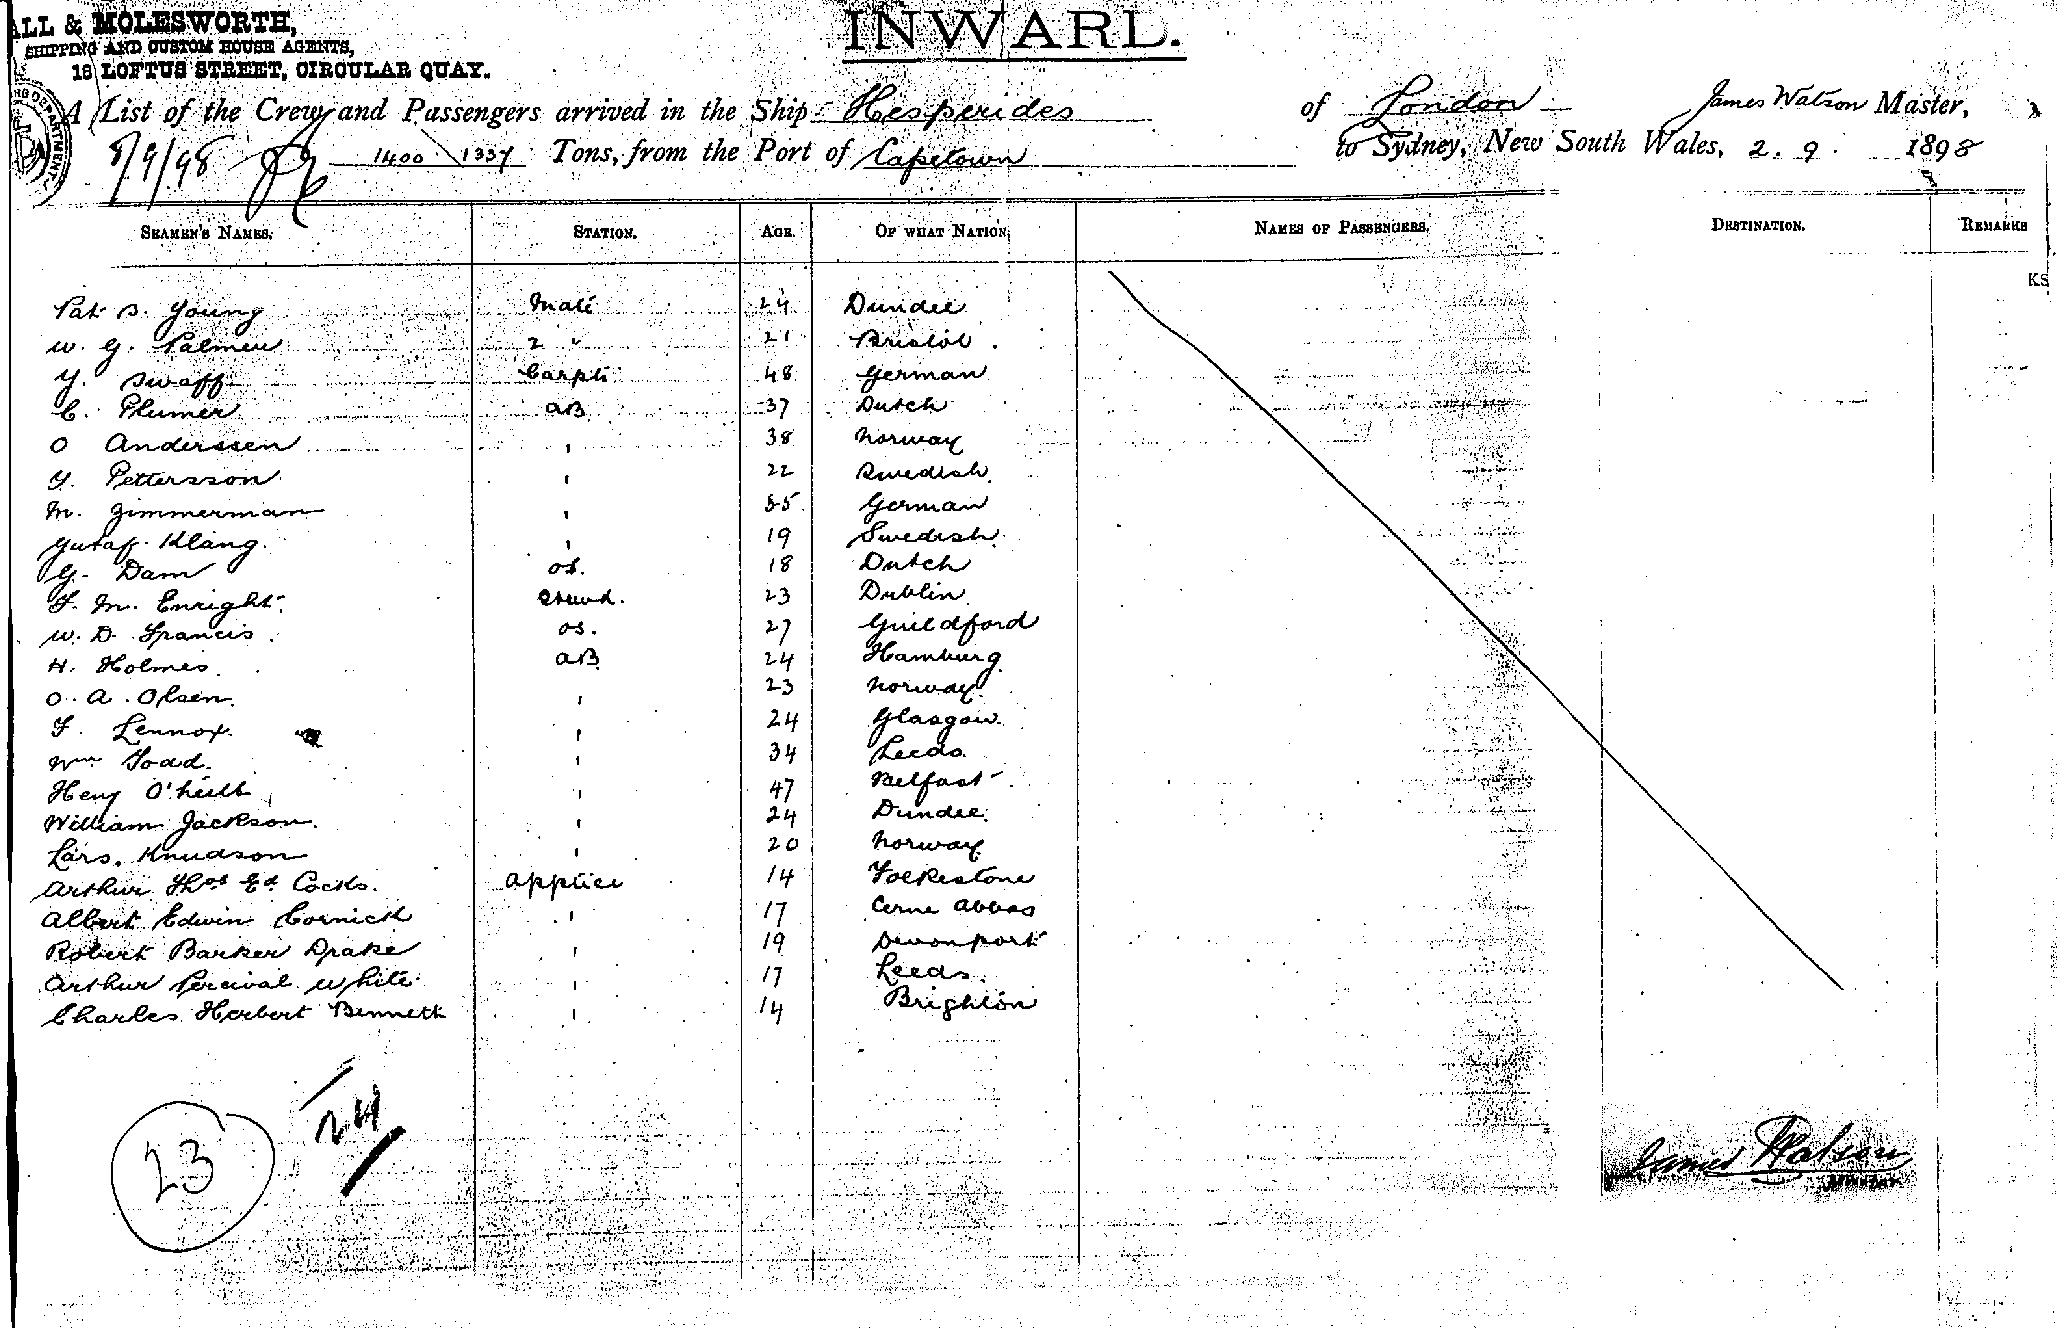 ALL & MOLESWORTH,
SHIPPING AND CUSTOM HOUSE AGENTS,
18 LOFTUS STREET, CIRCULAR QUAY.
INWARD.
A List of the Crew and Passengers arrived in the Ship Hesperides of London James Watson Master,
8/9/98 1400 1337 Tons, from the Port of Capetown to Sydney, New South Wales, 2. 9. 1898
SEAMEN'S NAMES. STATION. AGE. OF WHAT NATION. NAMES OF PASSENGERS. DESTINATION. REMARKS
KS
Pat B. Young Mate 24 Dundee
W. G. Palmer 2 " 21 Bristol.
Y. Swaff Carptr 48 German
C. Plumer AB 37 Dutch
O Anderssen " 38 Norway
Y. Pettersson " 22 Swedish
M. Zimmerman " 35 German
Gustaf Klang " 19 Swedish
G. Dam OS. 18 Dutch
F. M. Enright Stewd. 23 Dublin
W. D. Francis OS. 27 Guildford
H. Holmes AB 24 Hamburg
O. A. Olsen " 23 Norway
F. Lennox " 24 Glasgow
Wm Todd. " 34 Leeds
Heny O'Neill " 47 Belfast
William Jackson. " 24 Dundee
Lars. Knudson " 20 Norway
Arthur Thos Ed. Cocks. Apptice 14 Folkestone
Albert Edwin Cornick " 17 Cerne Abbas
Robert Barker Drake " 19 Devonport
Arthur Percival White " 17 Leeds
Charles Herbert Bennett " 14 Brighton
23
24
James Watson
Master